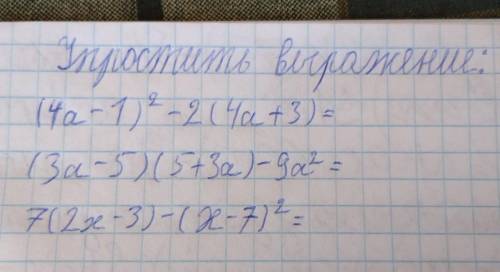 Упростить выражение:
(4a-1)²-2(4a+3)=
(3a-5)(5+3a)-9a²=
7(2x-3)-(x-7)²=